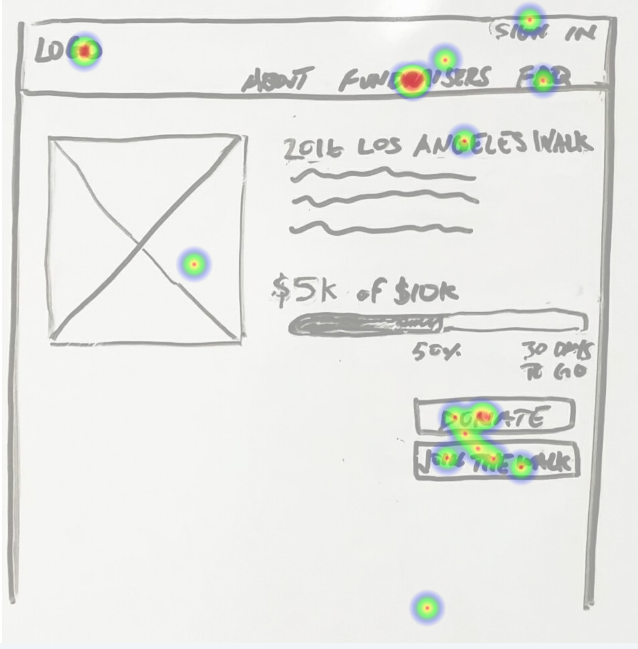 SIGN IN
LOGO
ABOUT FUNDRAISERS FAQ
2016 LOS ANGELES WALK
$5K of $10K
50% 30 DAYS
TO GO
DONATE
JOIN THE WALK